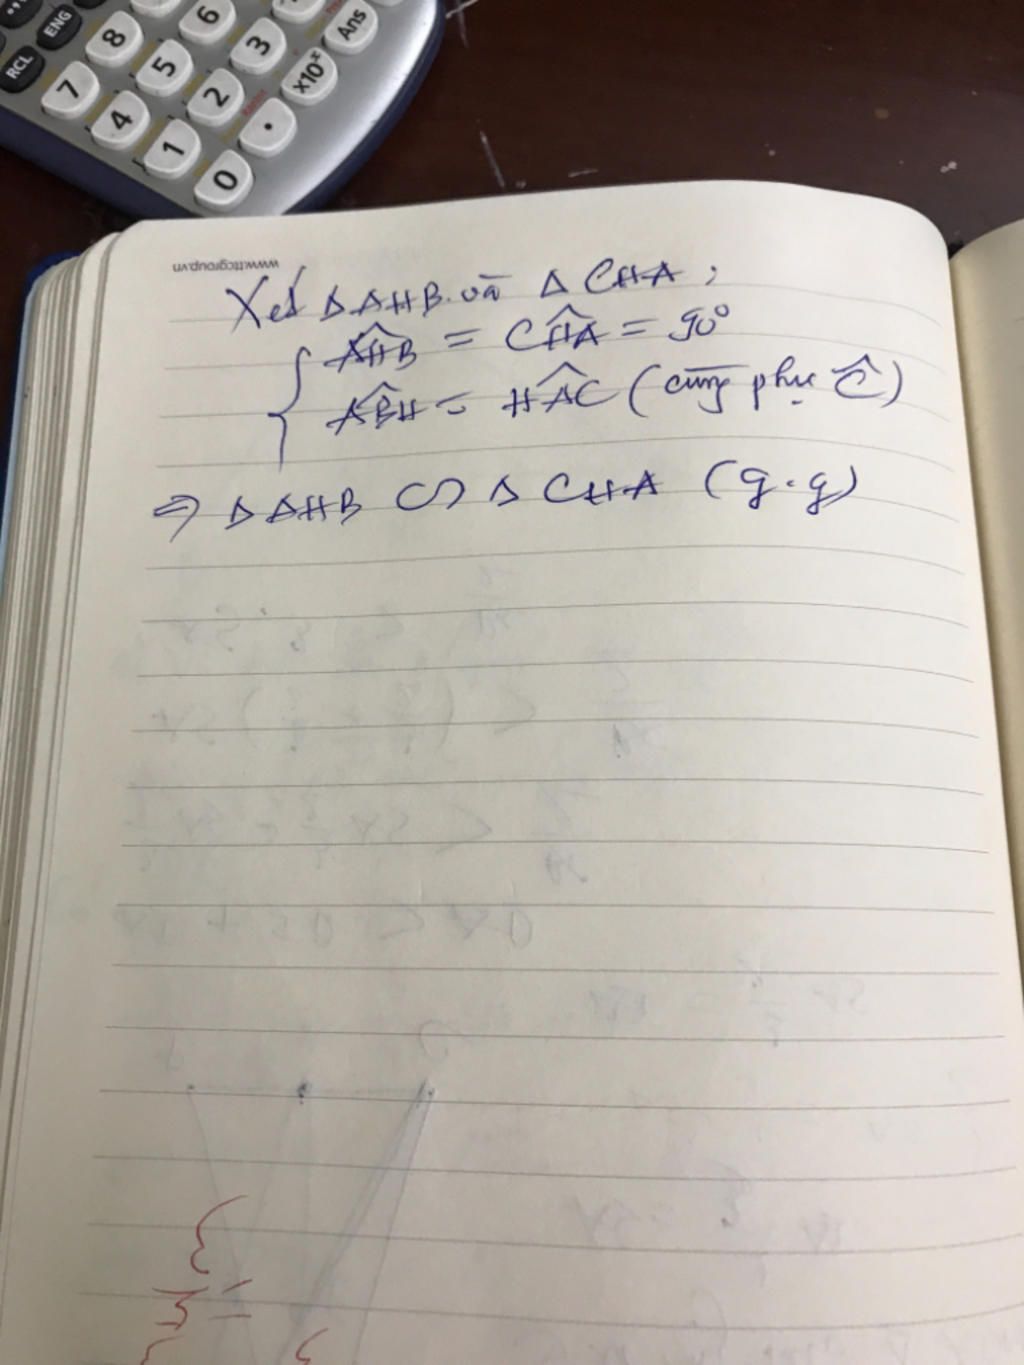 RCL
ENG
7
8
4
5
6
1
2
3
0
•
x10ˣ
Ans
www.ttcgroup.vn
Xét Δ AHB và Δ CHA;
{ AĤB = CĤA = 90°
AB̂H = HÂC (cùng phụ Ĉ)
⇒ Δ AHB ∽ Δ CHA (g.g)